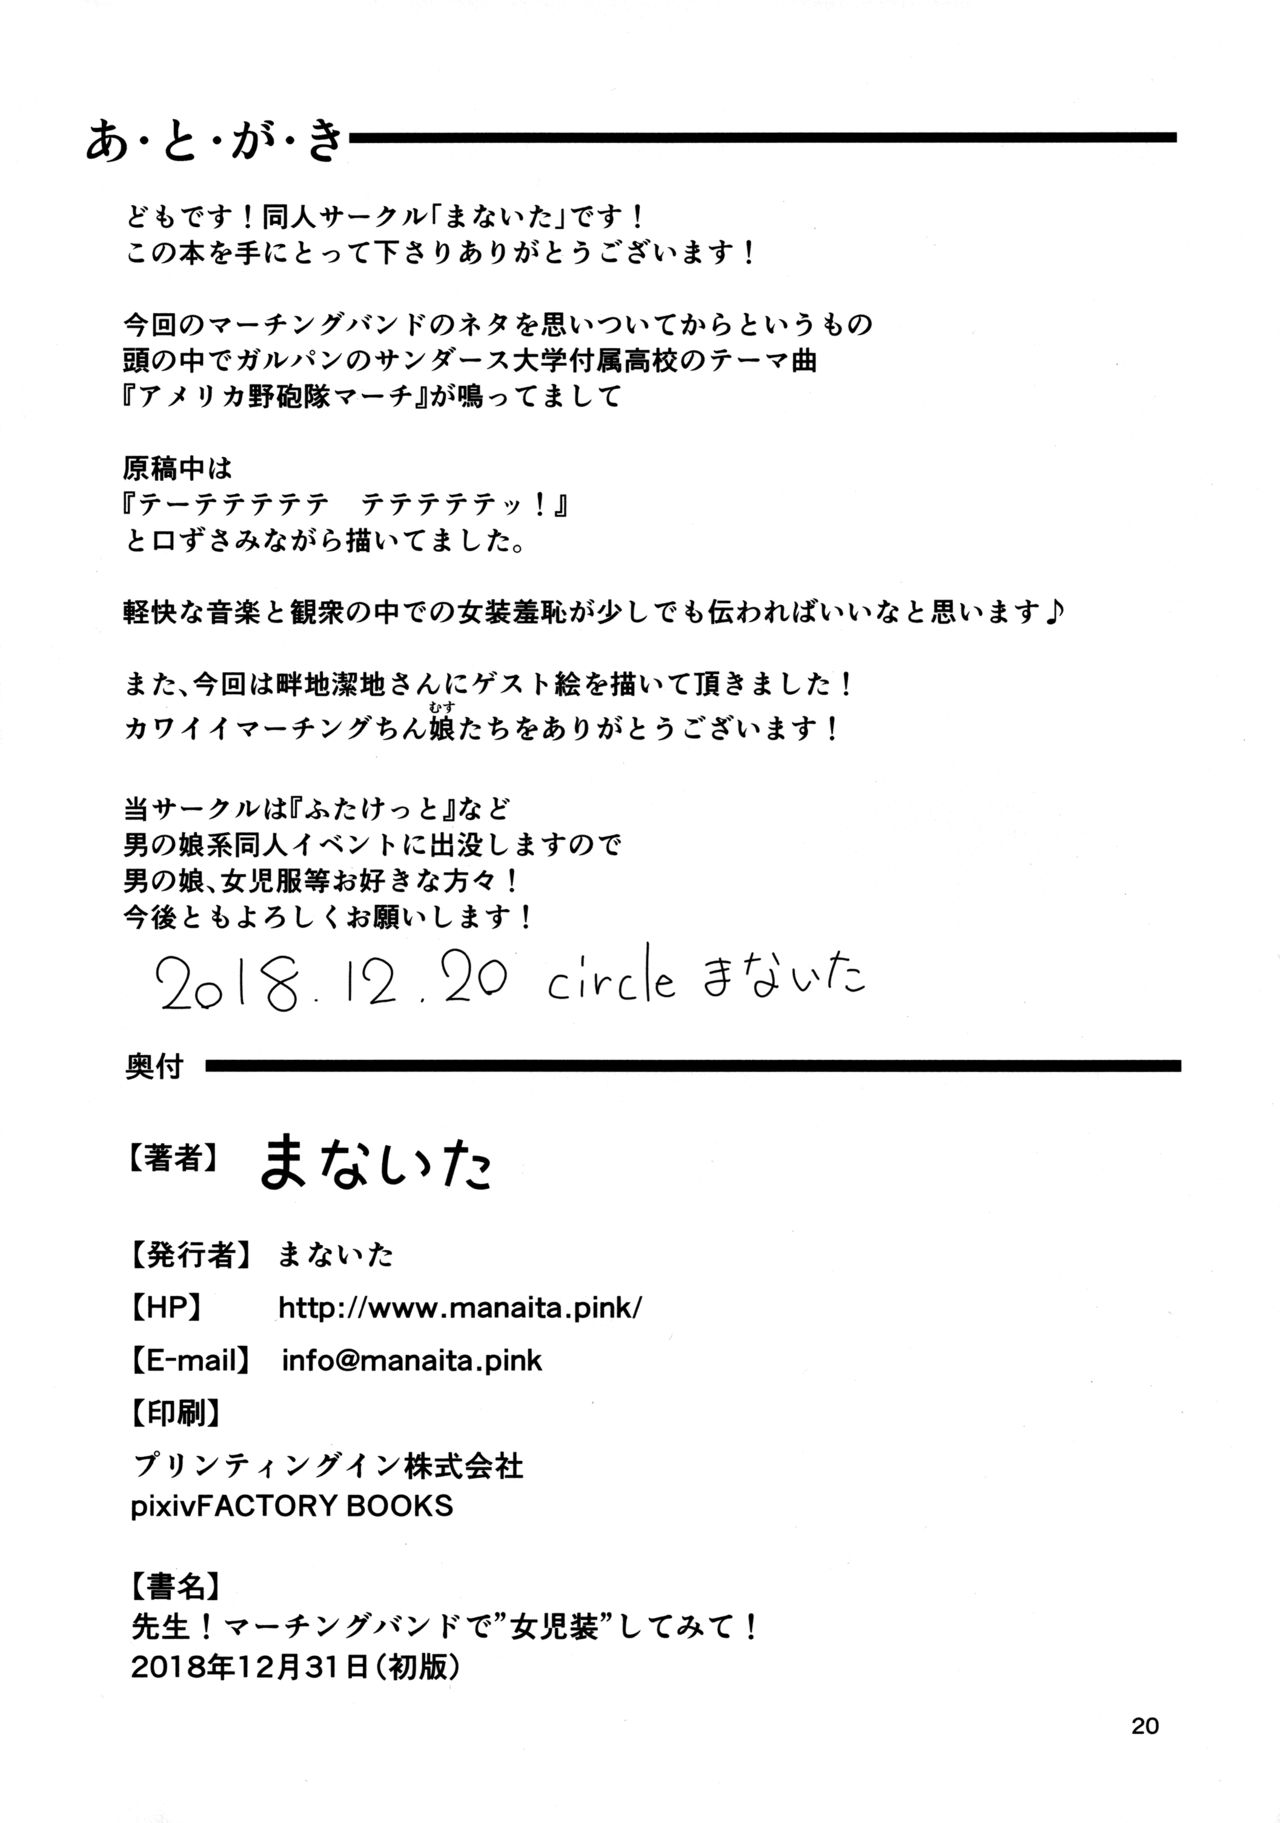 あ・と・が・き
どもです！同人サークル「まないた」です！
この本を手にとって下さりありがとうございます！
今回のマーチングバンドのネタを思いついてからというもの
頭の中でガルパンのサンダース大学付属高校のテーマ曲
『アメリカ野砲隊マーチ』が鳴ってまして
原稿中は
『テーテテテテテ　テテテテテッ！』
と口ずさみながら描いてました。
軽快な音楽と観衆の中での女装羞恥が少しでも伝わればいいなと思います♪
また、今回は畔地潔地さんにゲスト絵を描いて頂きました！
むす
カワイイマーチングちん娘たちをありがとうございます！
当サークルは『ふたけっと』など
男の娘系同人イベントに出没しますので
男の娘、女児服等お好きな方々！
今後ともよろしくお願いします！
2018.12.20 circle まないた
奥付
【著者】　まないた
【発行者】　まないた
【HP】　http://www.manaita.pink/
【E-mail】　info@manaita.pink
【印刷】
プリンティングイン株式会社
pixivFACTORY BOOKS
【書名】
先生！マーチングバンドで”女児装”してみて！
2018年12月31日（初版）
20